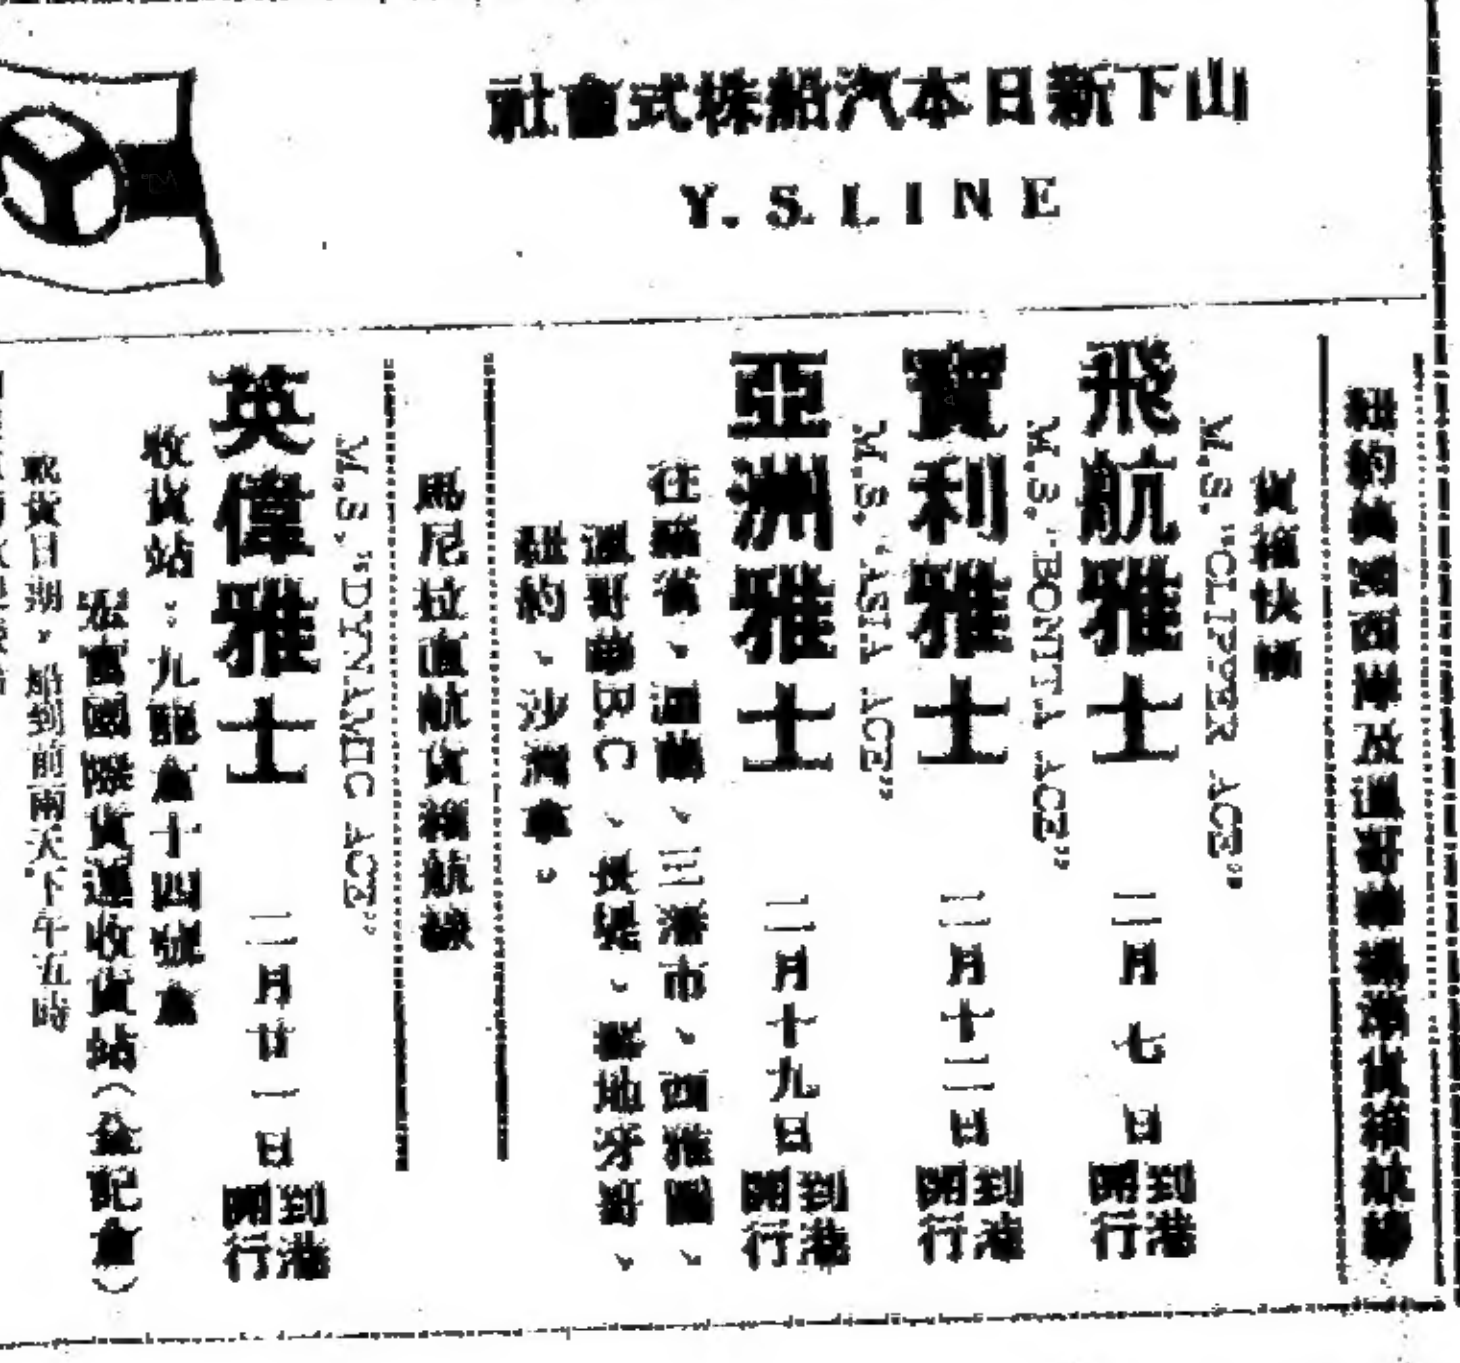 山下新日本汽船株式會社
Y. S. LINE
紐約美國西岸及溫哥華機動貨箱航線
貨箱快運
M.S. "CLIPPER ACE"
飛航雅士 二月七日 到港開行
M.S. "BONITA ACE"
寶利雅士 二月十三日 到港開行
M.S. "ASIA ACE"
亞洲雅士 二月十九日 到港開行
往羅省、屋崙、三藩市、西雅圖、
溫哥華B.C、長堤、聖地牙哥、
紐約、沙灣拿。
馬尼拉直航貨箱航線
M.S. "DYNAMIC ACE"
英偉雅士 二月廿一日 到港開行
收貨站：九龍倉十四號倉
宏高國際貨運收貨站(益記倉)
截貨日期，船到前兩天下午五時